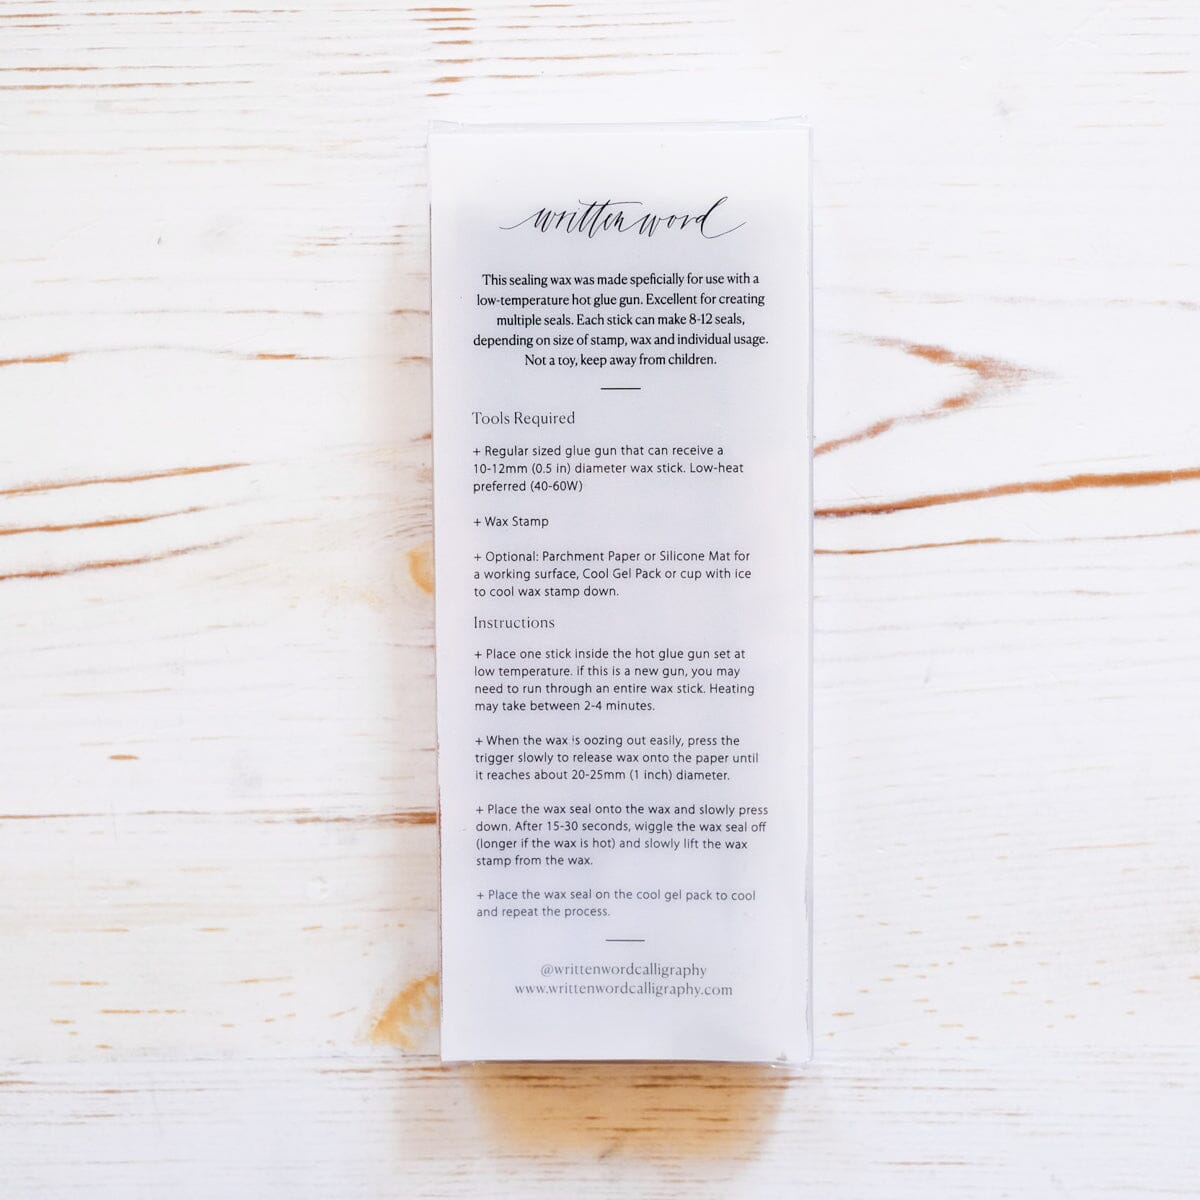 written word
This sealing wax was made speficially for use with a
low-temperature hot glue gun. Excellent for creating
multiple seals. Each stick can make 8-12 seals,
depending on size of stamp, wax and individual usage.
Not a toy, keep away from children.
Tools Required
+ Regular sized glue gun that can receive a
10-12mm (0.5 in) diameter wax stick. Low-heat
preferred (40-60W)
+ Wax Stamp
+ Optional: Parchment Paper or Silicone Mat for
a working surface, Cool Gel Pack or cup with ice
to cool wax stamp down.
Instructions
+ Place one stick inside the hot glue gun set at
low temperature. if this is a new gun, you may
need to run through an entire wax stick. Heating
may take between 2-4 minutes.
+ When the wax is oozing out easily, press the
trigger slowly to release wax onto the paper until
it reaches about 20-25mm (1 inch) diameter.
+ Place the wax seal onto the wax and slowly press
down. After 15-30 seconds, wiggle the wax seal off
(longer if the wax is hot) and slowly lift the wax
stamp from the wax.
+ Place the wax seal on the cool gel pack to cool
and repeat the process.
@writtenwordcalligraphy
www.writtenwordcalligraphy.com